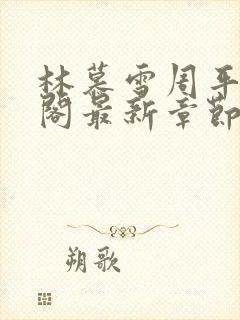 林慕雪周平
阁最新章节
朔歌